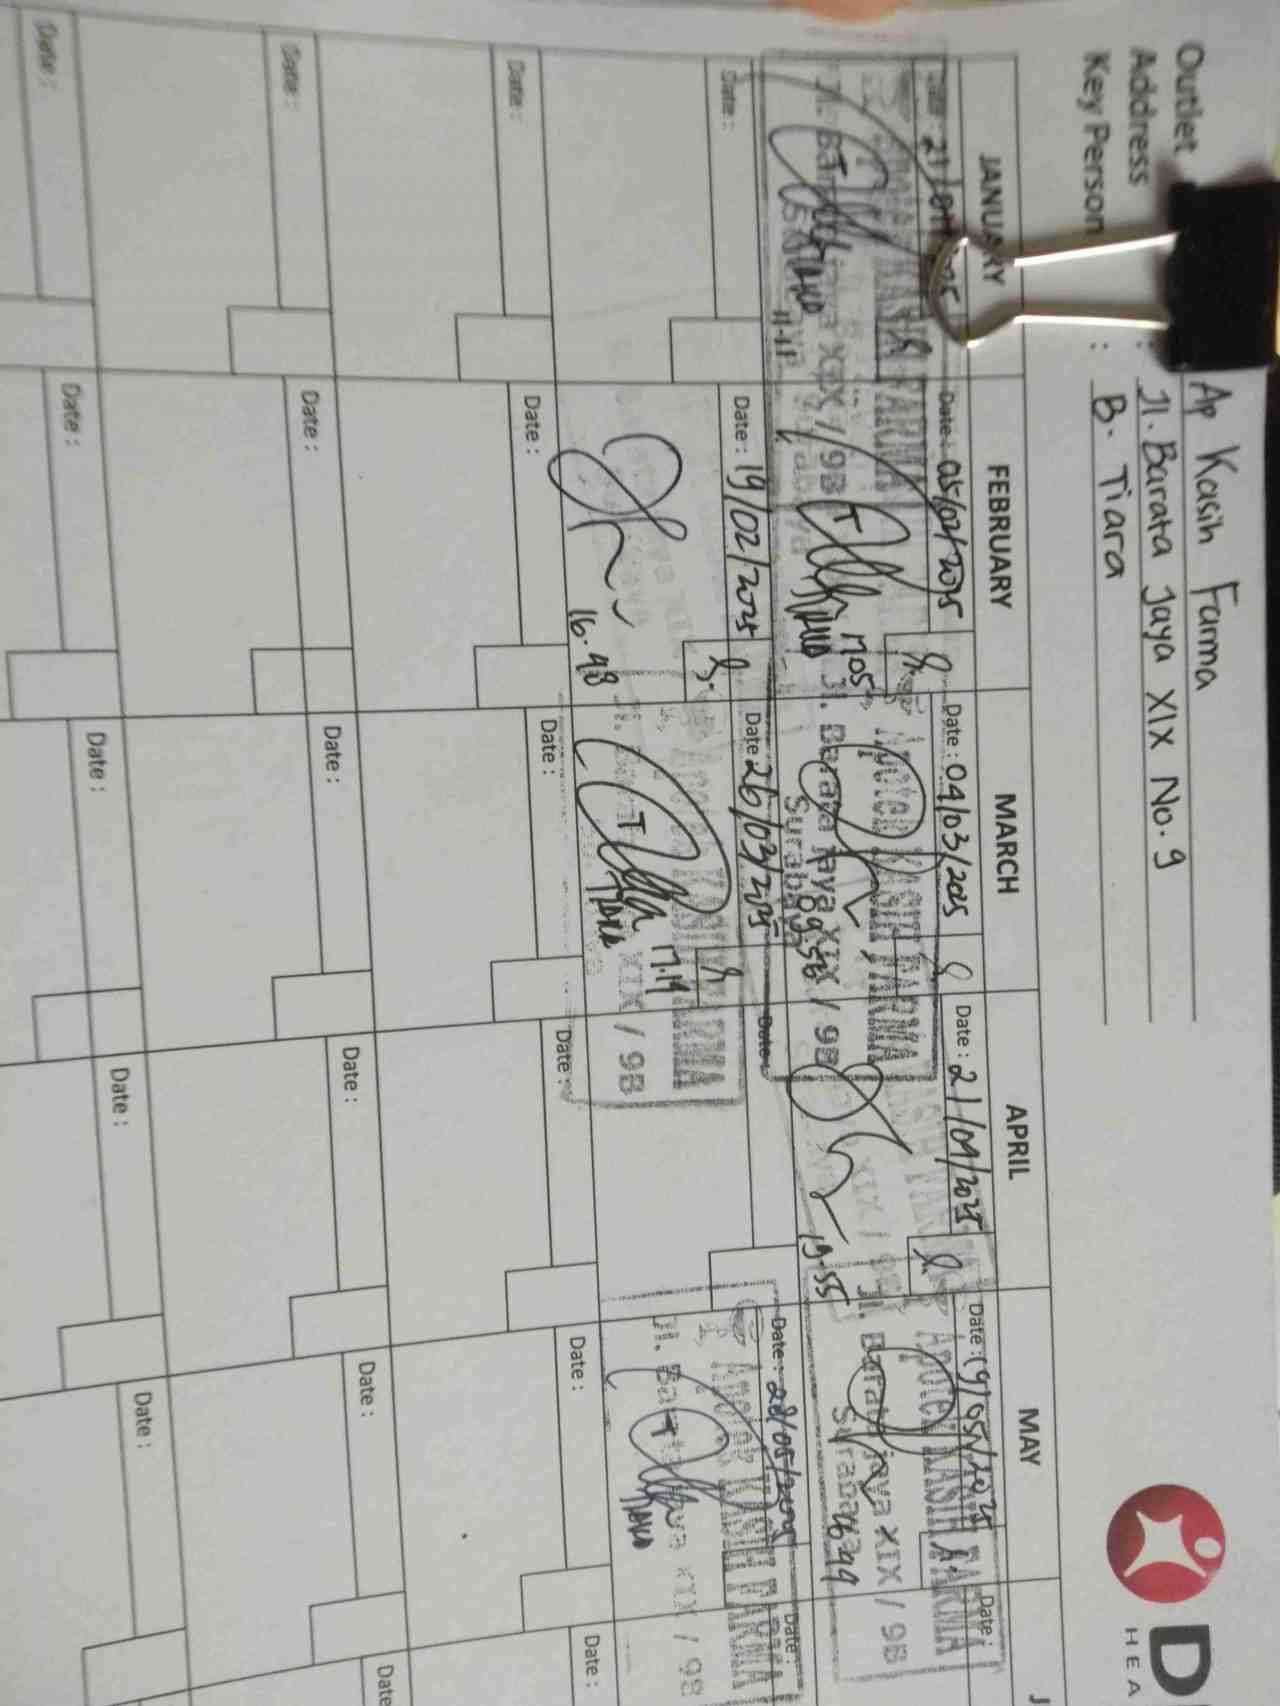 Outlet : Ap Kasih Farma
Address : Jl. Barata Jaya XIX No. 9
Key Person : B. Tiara
D
HEA
JANUARY FEBRUARY MARCH APRIL MAY J
Date : 05/02/2025 Date : 04/03/2025 Date : 21/04/2025 Date : 19/05/2025 Date :
Apotek KASIH FARMA
Jl. Barata Jaya XIX / 9B
Surabaya
11.11 17.05 09.56 19.55 16.49
Date : Date : 19/02/2025 Date : 26/03/2025 Date : Date : 28/05/2025 Date :
Apotek KASIH FARMA
Jl. Barata Jaya XIX / 9B
16.48 17.19
Date : Date : Date : Date : Date : Date :
Date : Date : Date : Date : Date : Date
Date : Date : Date : Date : Date :